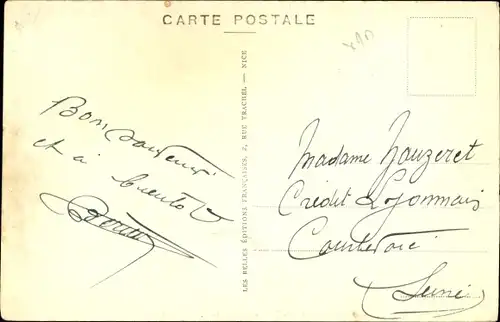 CARTE POSTALE
Bon souvenir
et à bientôt
LES BELLES ÉDITIONS FRANÇAISES, 2, RUE TRACHEL. — NICE
Madame Nauzeret
Crédit Lyonnais
Courbevoie
(Seine)